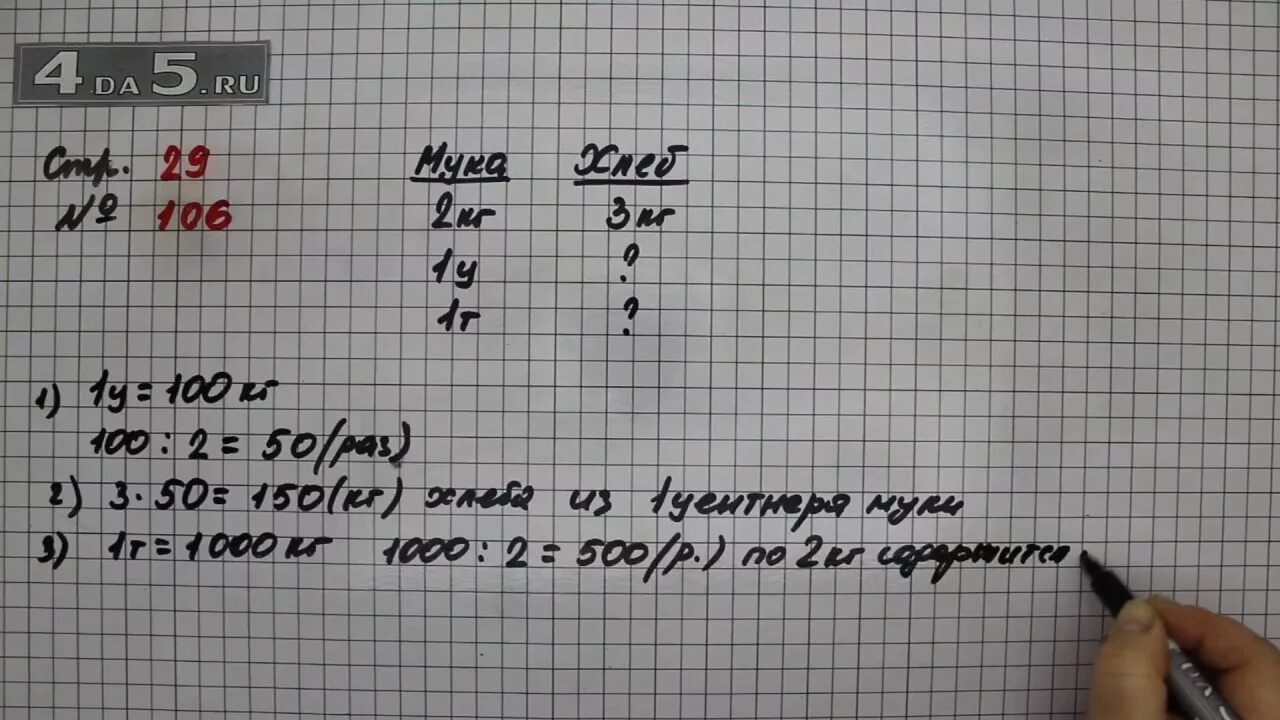 4 DA 5.RU
Стр. 29
№ 106
Мука Хлеб
2кг 3кг
1ц ?
1т ?
1) 1ц = 100 кг
100 : 2 = 50 (раз)
2) 3 · 50 = 150 (кг) хлеба из 1 центнера муки
3) 1т = 1000 кг 1000 : 2 = 500 (р.) по 2 кг содержится